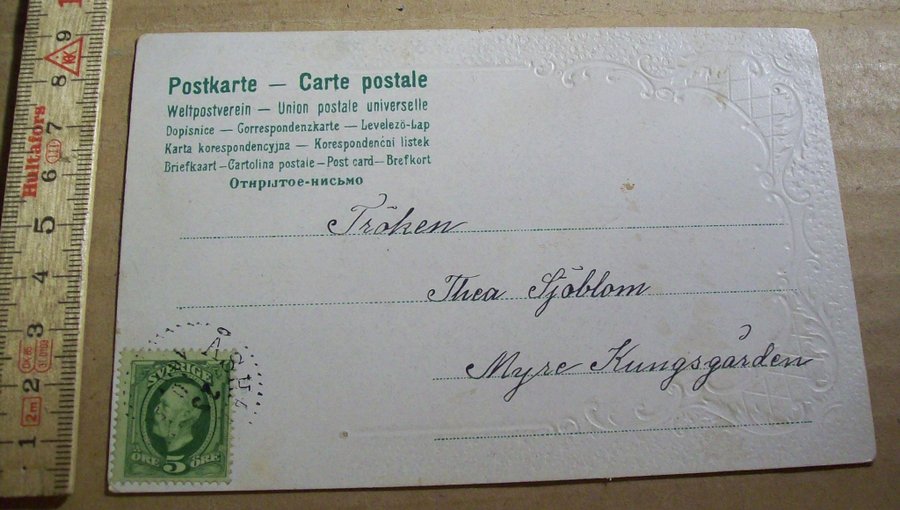 Postkarte — Carte postale
Weltpostverein — Union postale universelle
Dopisnice — Correspondenzkarte — Levelező-Lap
Karta korespondencyjna — Korespondenční listek
Briefkaart — Cartolina postale — Post card — Brefkort
Открытое-письмо
Fröken
Thea Sjöblom
Myre Kungsgården
SVERIGE
ÖRE 5 ÖRE
Hultafors
1 2 3 4 5 6 7 8 9
2m